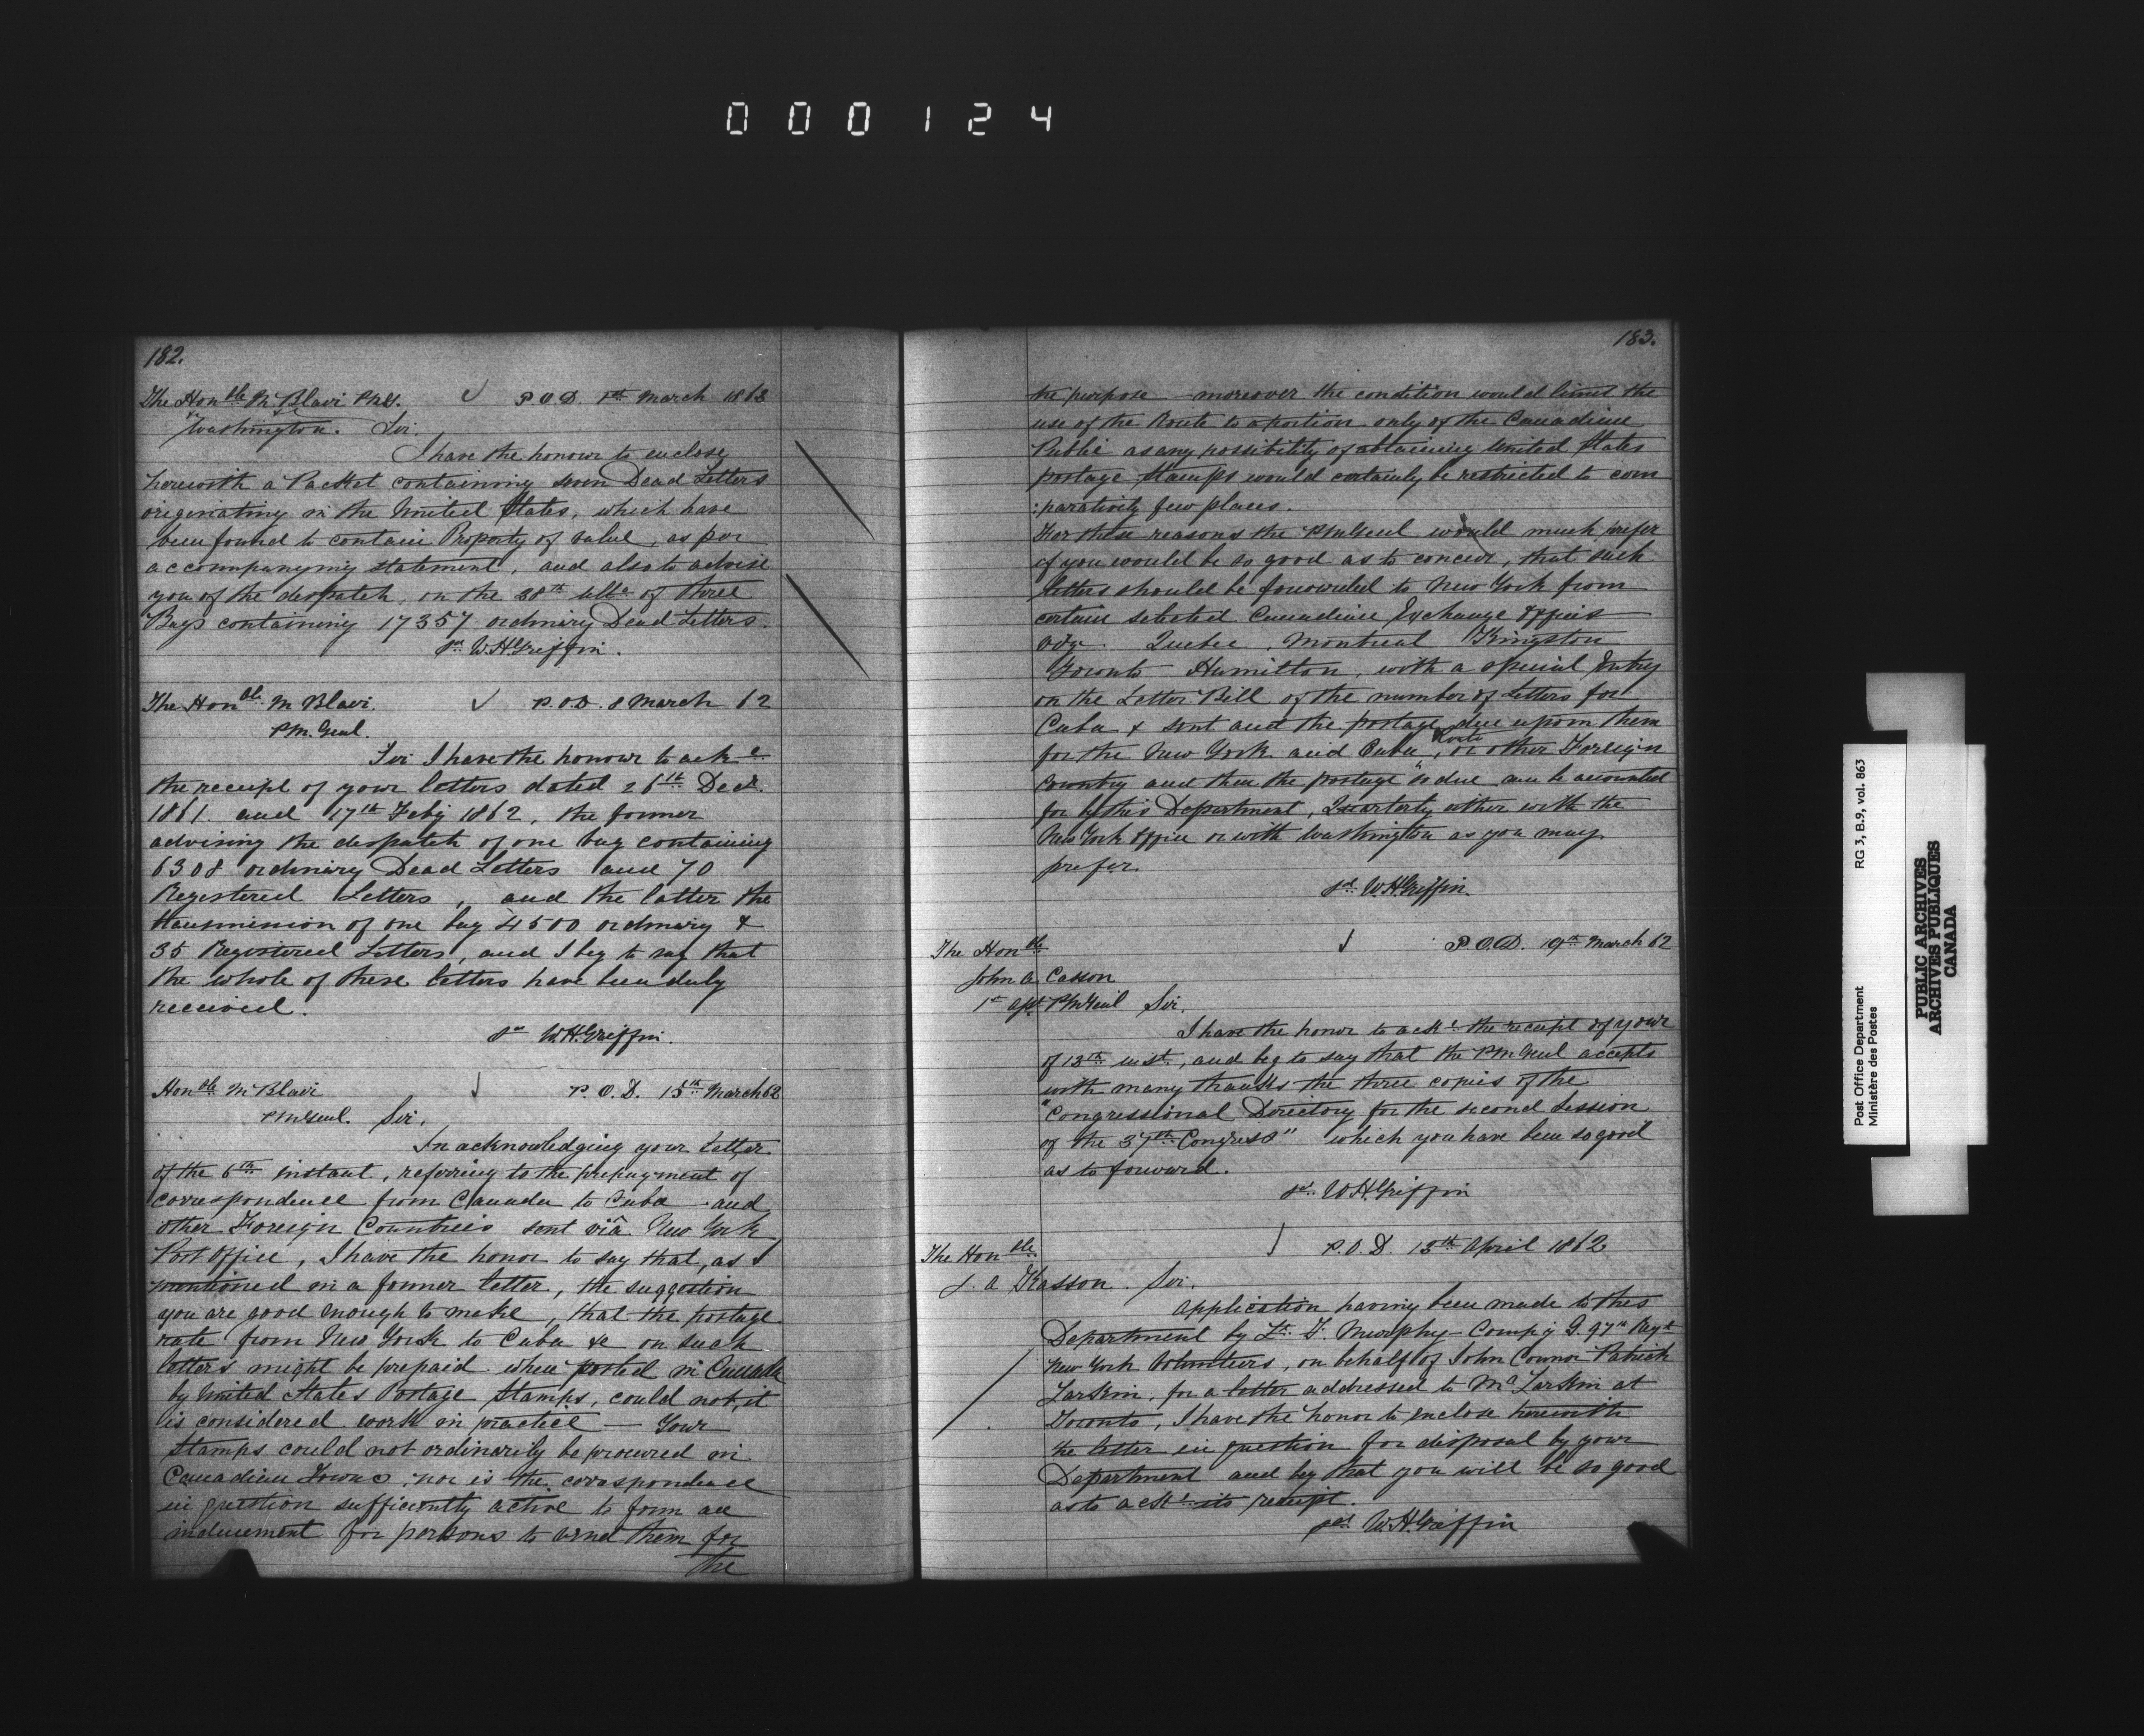 000124
182.
The Honble M Blair PMG. P.O.D. 1st March 1862
&c &c
Washington. Sir.
I have the honour to enclose
herewith a Packet containing seven Dead Letters
originating in the United States, which have
been found to contain Property of value, as per
accompanying statement, and also to advise
you of the despatch, on the 28th ulto of three
Bags containing 17357 ordinary Dead Letters.
sd W.H.Griffin.
The Honble M Blair. P.O.D. 8 March 62
PM. Genl.
Sir I have the honour to acke
the receipt of your letters dated 26th Decr.
1861 and 17th Feby 1862, the former
advising the despatch of one bag containing
6308 ordinary Dead Letters and 70
Registered Letters, and the latter the
transmission of one bag 4500 ordinary &
35 Registered Letters, and I beg to say that
the whole of these letters have been duly
received.
sd W.H.Griffin.
Honble M Blair P.O.D. 15th March 62
PMGenl. Sir,
In acknowledging your letter
of the 6th instant, referring to the prepayment of
correspondence from Canada to Cuba and
other Foreign Countries sent viâ New York
Post Office, I have the honor to say that, as I
mentioned in a former letter, the suggestion
you are good enough to make, that the postage
rate from New York to Cuba &c on such
letters might be prepaid when posted in Canada
by United States Postage Stamps, could not, it
is considered work in practice — Your
Stamps could not ordinarily be procured in
Canadian Towns, nor is the correspondence
in question sufficiently active to form an
inducement for persons to vend them for
the
183.
the purpose – moreover the condition would limit the
use of the Route to a portion only of the Canadian
Public as any possibility of obtaining United States
postage stamps would certainly be restricted to com
:paratively few places.
For these reasons the PMGenl would much prefer
if you would be so good as to concur, that such
letters should be forwarded to New York from
certain selected Canadian Exchange Offices
viz. Quebec, Montreal Kingston
Toronto Hamilton, with a special Entry
on the Letter Bill of the number of Letters for
Cuba & sent and the postage due upon them
for the New York and Cuba Route, or other Foreign
Country and then the postage so due can be accounted
for by this Department, Quarterly either with the
New York Office or with Washington as you may
prefer.
sd W.H.Griffin.
The Honble P.O.D. 19th March 62
John A. Casson
1st Asst PMGenl Sir.
I have the honor to acke the receipt of your
of 13th inst, and beg to say that the PMGenl accepts
with many thanks the three copies of the
"Congressional Directory for the second Session
of the 37th Congress" which you have been so good
as to forward.
sd W.H.Griffin
The Honble P.O.D. 15th April 1862
J. A Kasson. Sir.
Application having been made to this
Department by Lt. T. Murphy – Compy G. 97th Regt
New York Volunteers, on behalf of John Connor Patrick
Larkin, for a letter addressed to Larkin at
Toronto, I have the honor to enclose herewith
the letter in question for disposal by your
Department and beg that you will be so good
as to acke its receipt.
sd W.H.Griffin
Post Office Department
Ministère des Postes
RG 3, B.9, vol. 863
PUBLIC ARCHIVES
ARCHIVES PUBLIQUES
CANADA